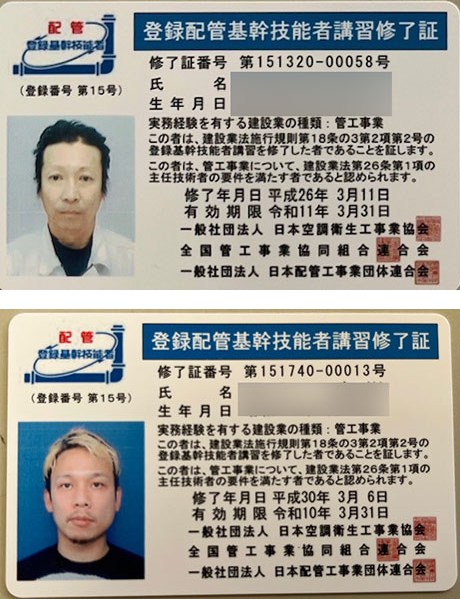 配管
登録基幹技能者
(登録番号 第15号)
登録配管基幹技能者講習修了証
修了証番号 第151320-00058号
氏 名
生年月日
実務経験を有する建設業の種類:管工事業
この者は、建設業法施行規則第18条の3第2項第2号の
登録基幹技能者講習を修了した者であることを証します。
この者は、管工事業について、建設業法第26条第1項の
主任技術者の要件を満たす者であると認められます。
修了年月日 平成26年 3月11日
有効期限 令和11年 3月31日
一般社団法人 日本空調衛生工事業協会
全国管工事業協同組合連合会
一般社団法人 日本配管工事業団体連合会
配管
登録基幹技能者
(登録番号 第15号)
登録配管基幹技能者講習修了証
修了証番号 第151740-00013号
氏 名
生年月日
実務経験を有する建設業の種類:管工事業
この者は、建設業法施行規則第18条の3第2項第2号の
登録基幹技能者講習を修了した者であることを証します。
この者は、管工事業について、建設業法第26条第1項の
主任技術者の要件を満たす者であると認められます。
修了年月日 平成30年 3月 6日
有効期限 令和10年 3月31日
一般社団法人 日本空調衛生工事業協会
全国管工事業協同組合連合会
一般社団法人 日本配管工事業団体連合会